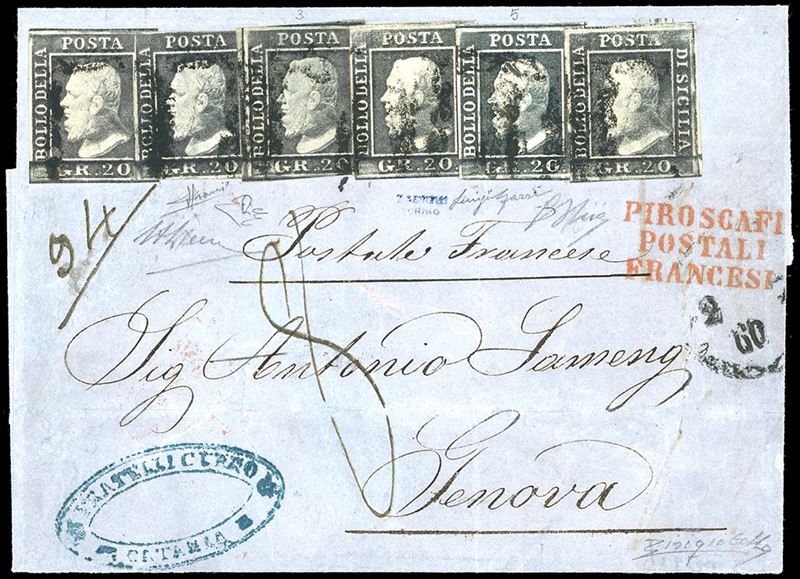 3 5
POSTA POSTA POSTA POSTA POSTA POSTA
BOLLO DELLA BOLLO DELLA BOLLO DELLA BOLLO DELLA BOLLO DELLA BOLLO DELLA DI SICILIA
GR. 20 GR. 20 GR. 20 GR. 20 GR. 20 GR. 20
94
PIROSCAFI
POSTALI
FRANCESI
Postale Francese
2
60
Sig Antonio Sameng
Genova
FRATELLI
CATANIA